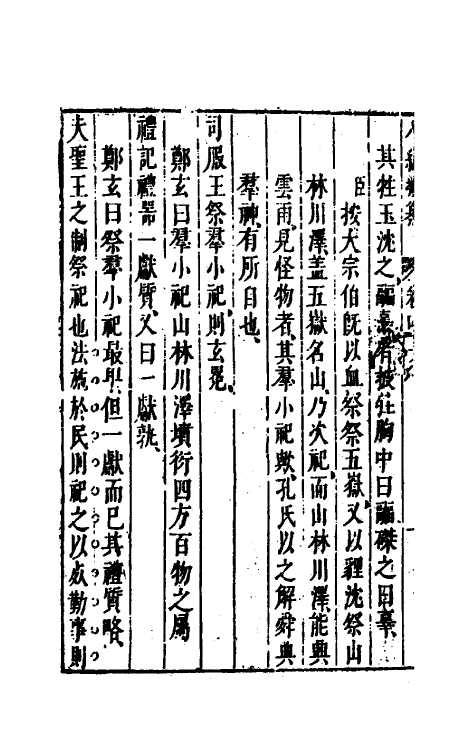 其牲玉沈之疈辜者披牲胸中曰疈磔之曰辜
臣按大宗伯旣以血祭祭五嶽又以貍沈祭山
林川澤盖五嶽名山乃次祀而山林川澤能興
雲雨見怪物者其羣小祀歟孔氏以之解舜典
羣神有所自也
司服王祭羣小祀則玄冕
鄭玄曰羣小祀山林川澤墳衍四方百物之屬
禮記禮器一獻質又曰一獻孰
鄭玄曰祭羣小祀最卑但一獻而已其禮質略
夫聖王之制祭祀也法施於民則祀之以死勤事則